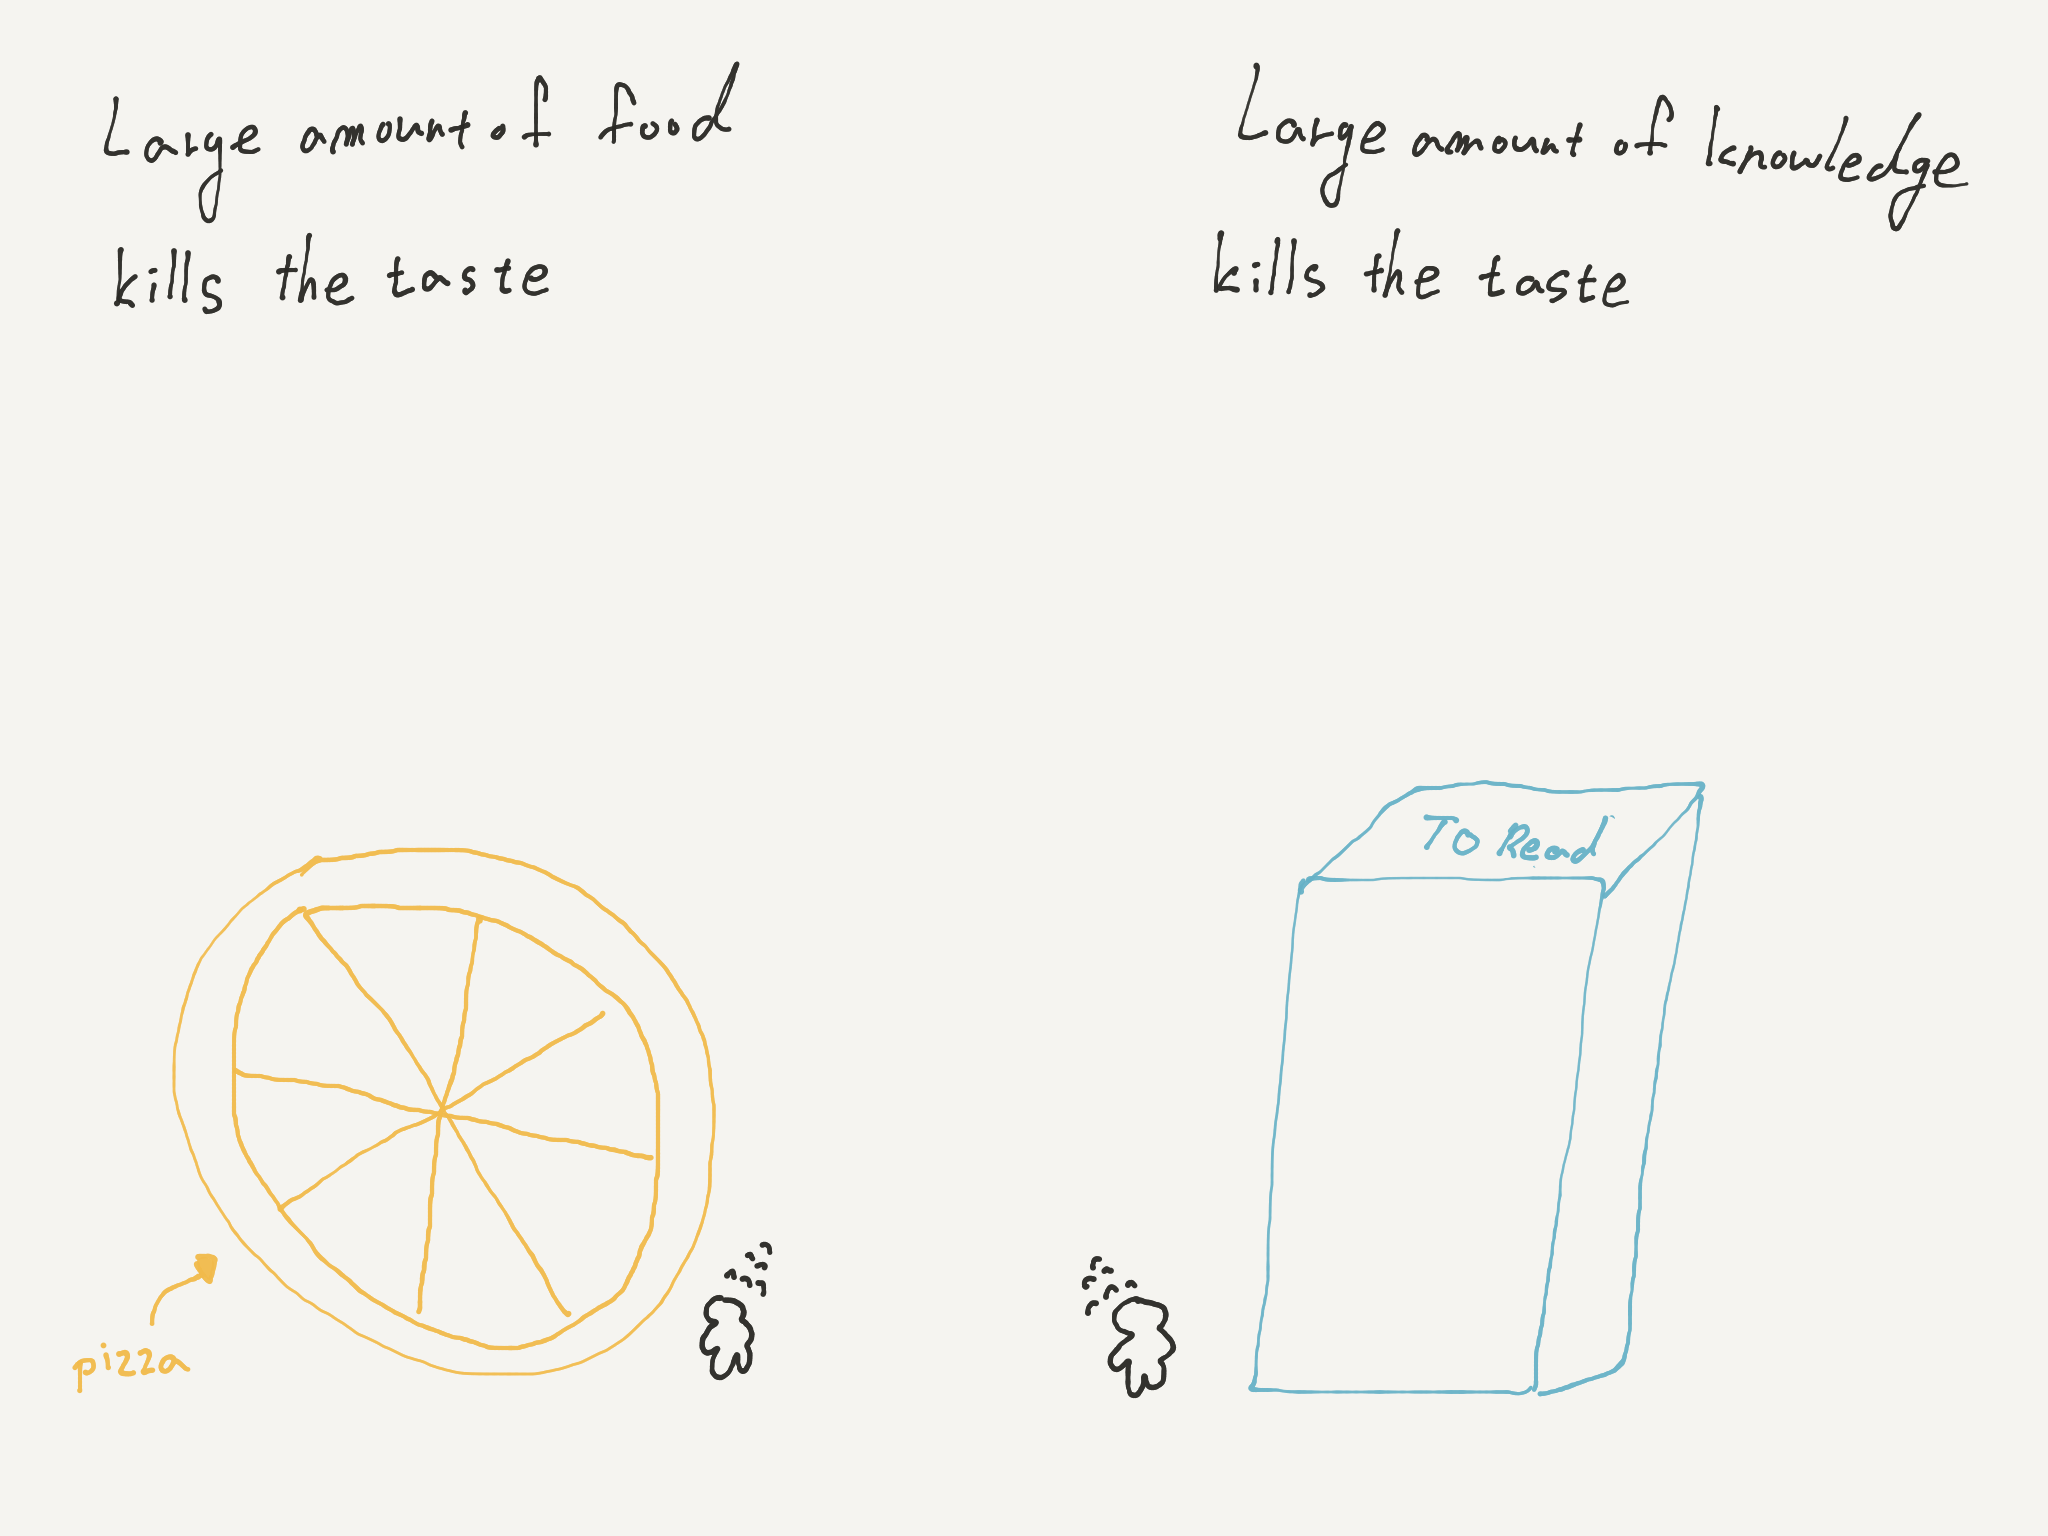 Large amount of food
kills the taste
Large amount of knowledge
kills the taste
To Read
pizza